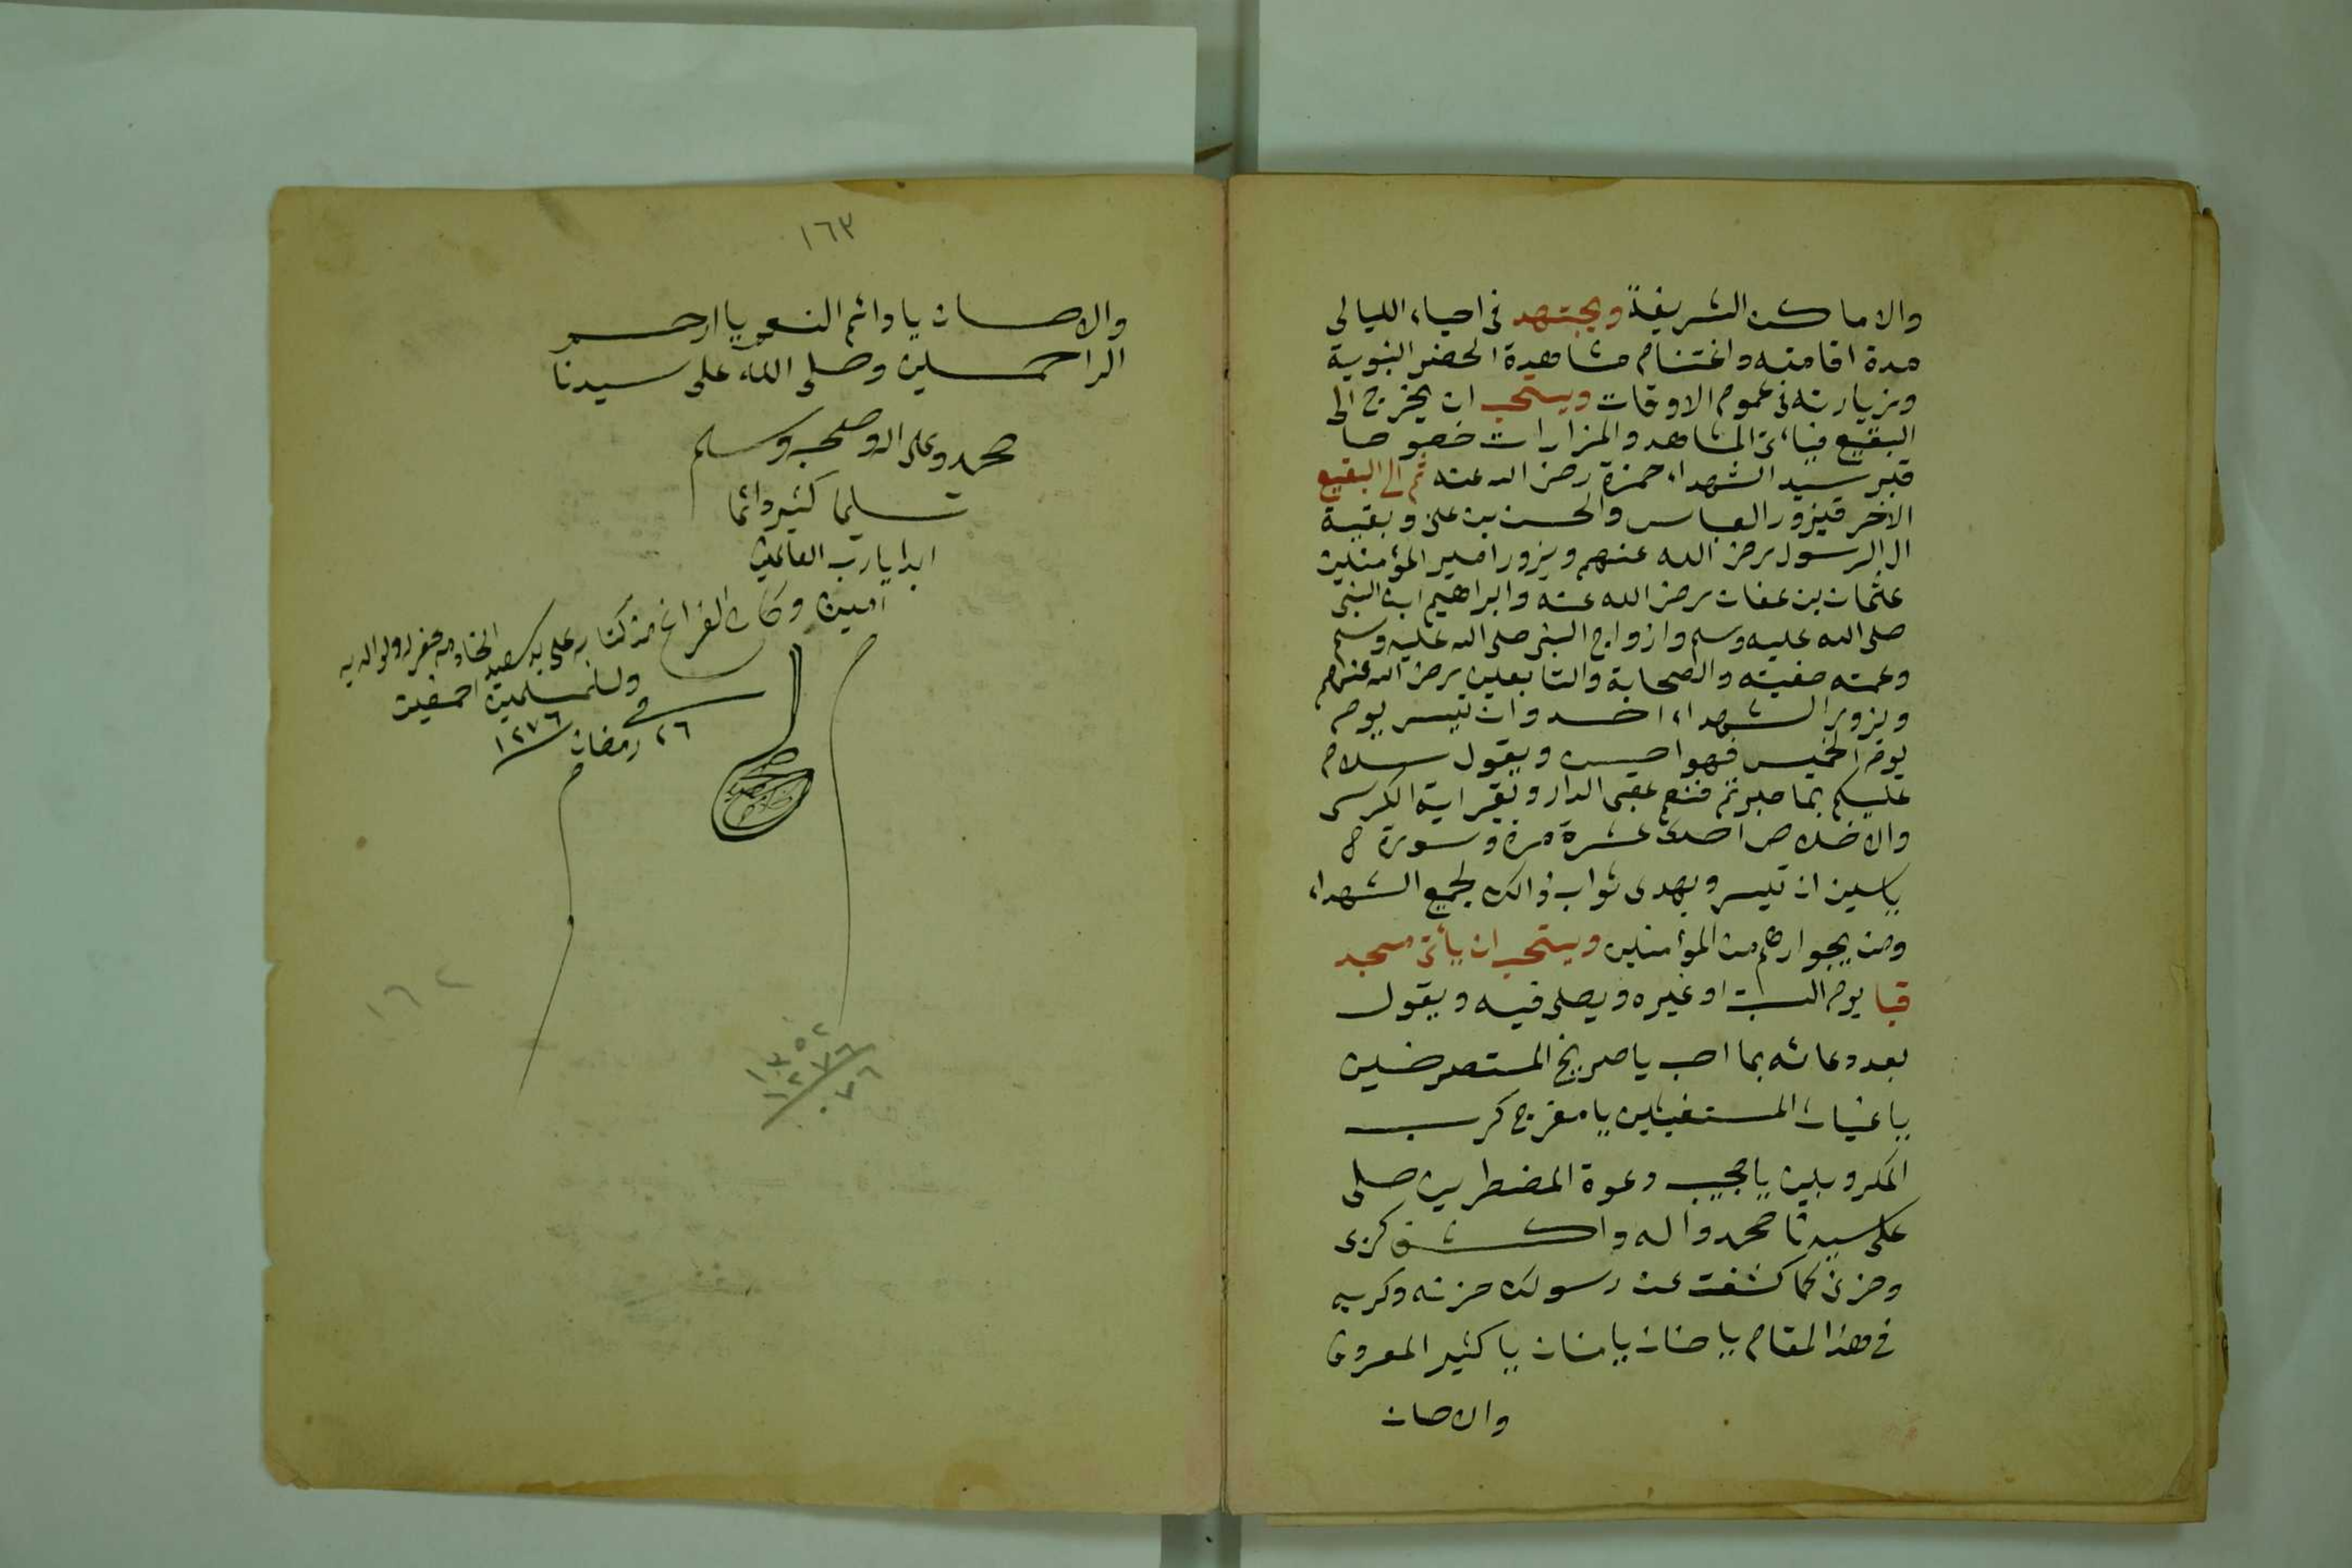 والاماكن الشريفة ويجتهد في احياء الليالي
مدة اقامته واغتنام مشاهدة الحضر النبوية
وزيارته في عموم الاوقات ويستحب ان يخرج الى
البقيع فيأتى المشاهد والمزارات خصوصا
قبر سيد الشهداء حمزة رضى الله عنه ثم الى البقيع
الاخر فيزور العباس والحسن بن على وبقية
ال الرسول رضى الله عنهم ويزور امير المؤمنين
عثمان بن عفان رضى الله عنه وابراهيم ابن النبى
صلى الله عليه وسلم وازواج النبى صلى الله عليه وسلم
وعمته صفيته والصحابة والتابعين رضى الله عنهم
ويزور الشهداء احد وان تيسر يوم
يوم الخميس فهو احسن ويقول سلام
عليكم بما صبرتم فنعم عقبى الدار ويقرا اية الكرسى
والاخلاص احدى عشرة مرة وسورة
ياسين ان تيسر ويهدى ثواب ذالك لجميع الشهداء
ومن بجوارهم من المؤمنين ويستحب ان يأتى مسجد
قبا يوم السبت او غيره ويصلى فيه ويقول
بعد دعائه بما احب يا صريخ المستصرخين
يا غياث المستغيثين يا مفرج كرب
المكروبين يا مجيب دعوة المضطرين صلى
على سيدنا محمد واله واكشف كربى
وحزنى كما كشفت عن رسولك حزنه وكربه
في هذا المقام يا حنان يا منان يا كثير المعروف
والاحسان
١٦٣
والاحسان يا دائم النعم يا ارحم
الراحمين وصلى الله على سيدنا
محمد وعلى اله وصحبه وسلم
تسليما كثير دائما
ابدا يا رب العالمين
امين وكان الفراغ من كتابه على يد سعيد الخادم غفر له ولوالديه
وللمسلمين اجمعين
في
٢٦ رمضان ١٢٧٦
١٦٢
١٣٥٢
١٢٧٦
٠٧٦